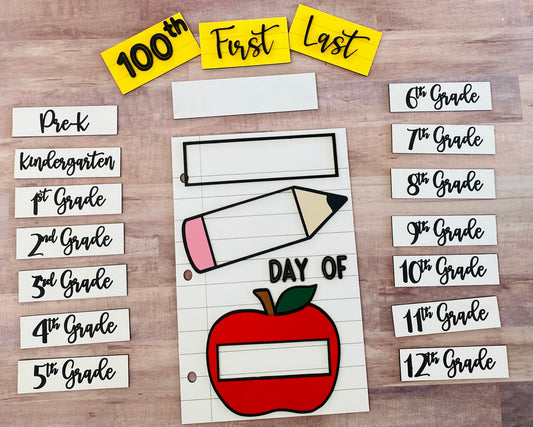 100th
First
Last
Pre-K
Kindergarten
1st Grade
2nd Grade
3rd Grade
4th Grade
5th Grade
DAY OF
6th Grade
7th Grade
8th Grade
9th Grade
10th Grade
11th Grade
12th Grade